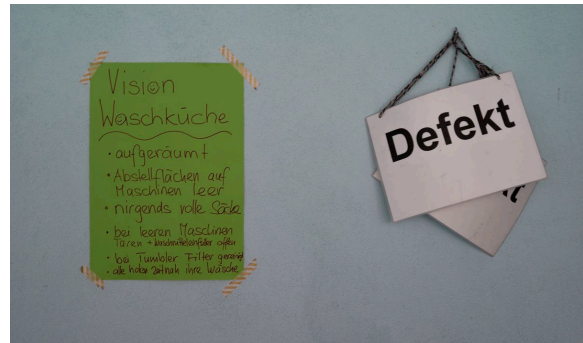 Vision
Waschküche
• aufgeräumt
• Abstellflächen auf
Maschinen leer
• nirgends volle Säcke
• bei leeren Maschinen
Türen + Waschmittelfächer offen
• bei Tumbler Filter gereinigt
• alle holen zeitnah ihre Wäsche
Defekt
t